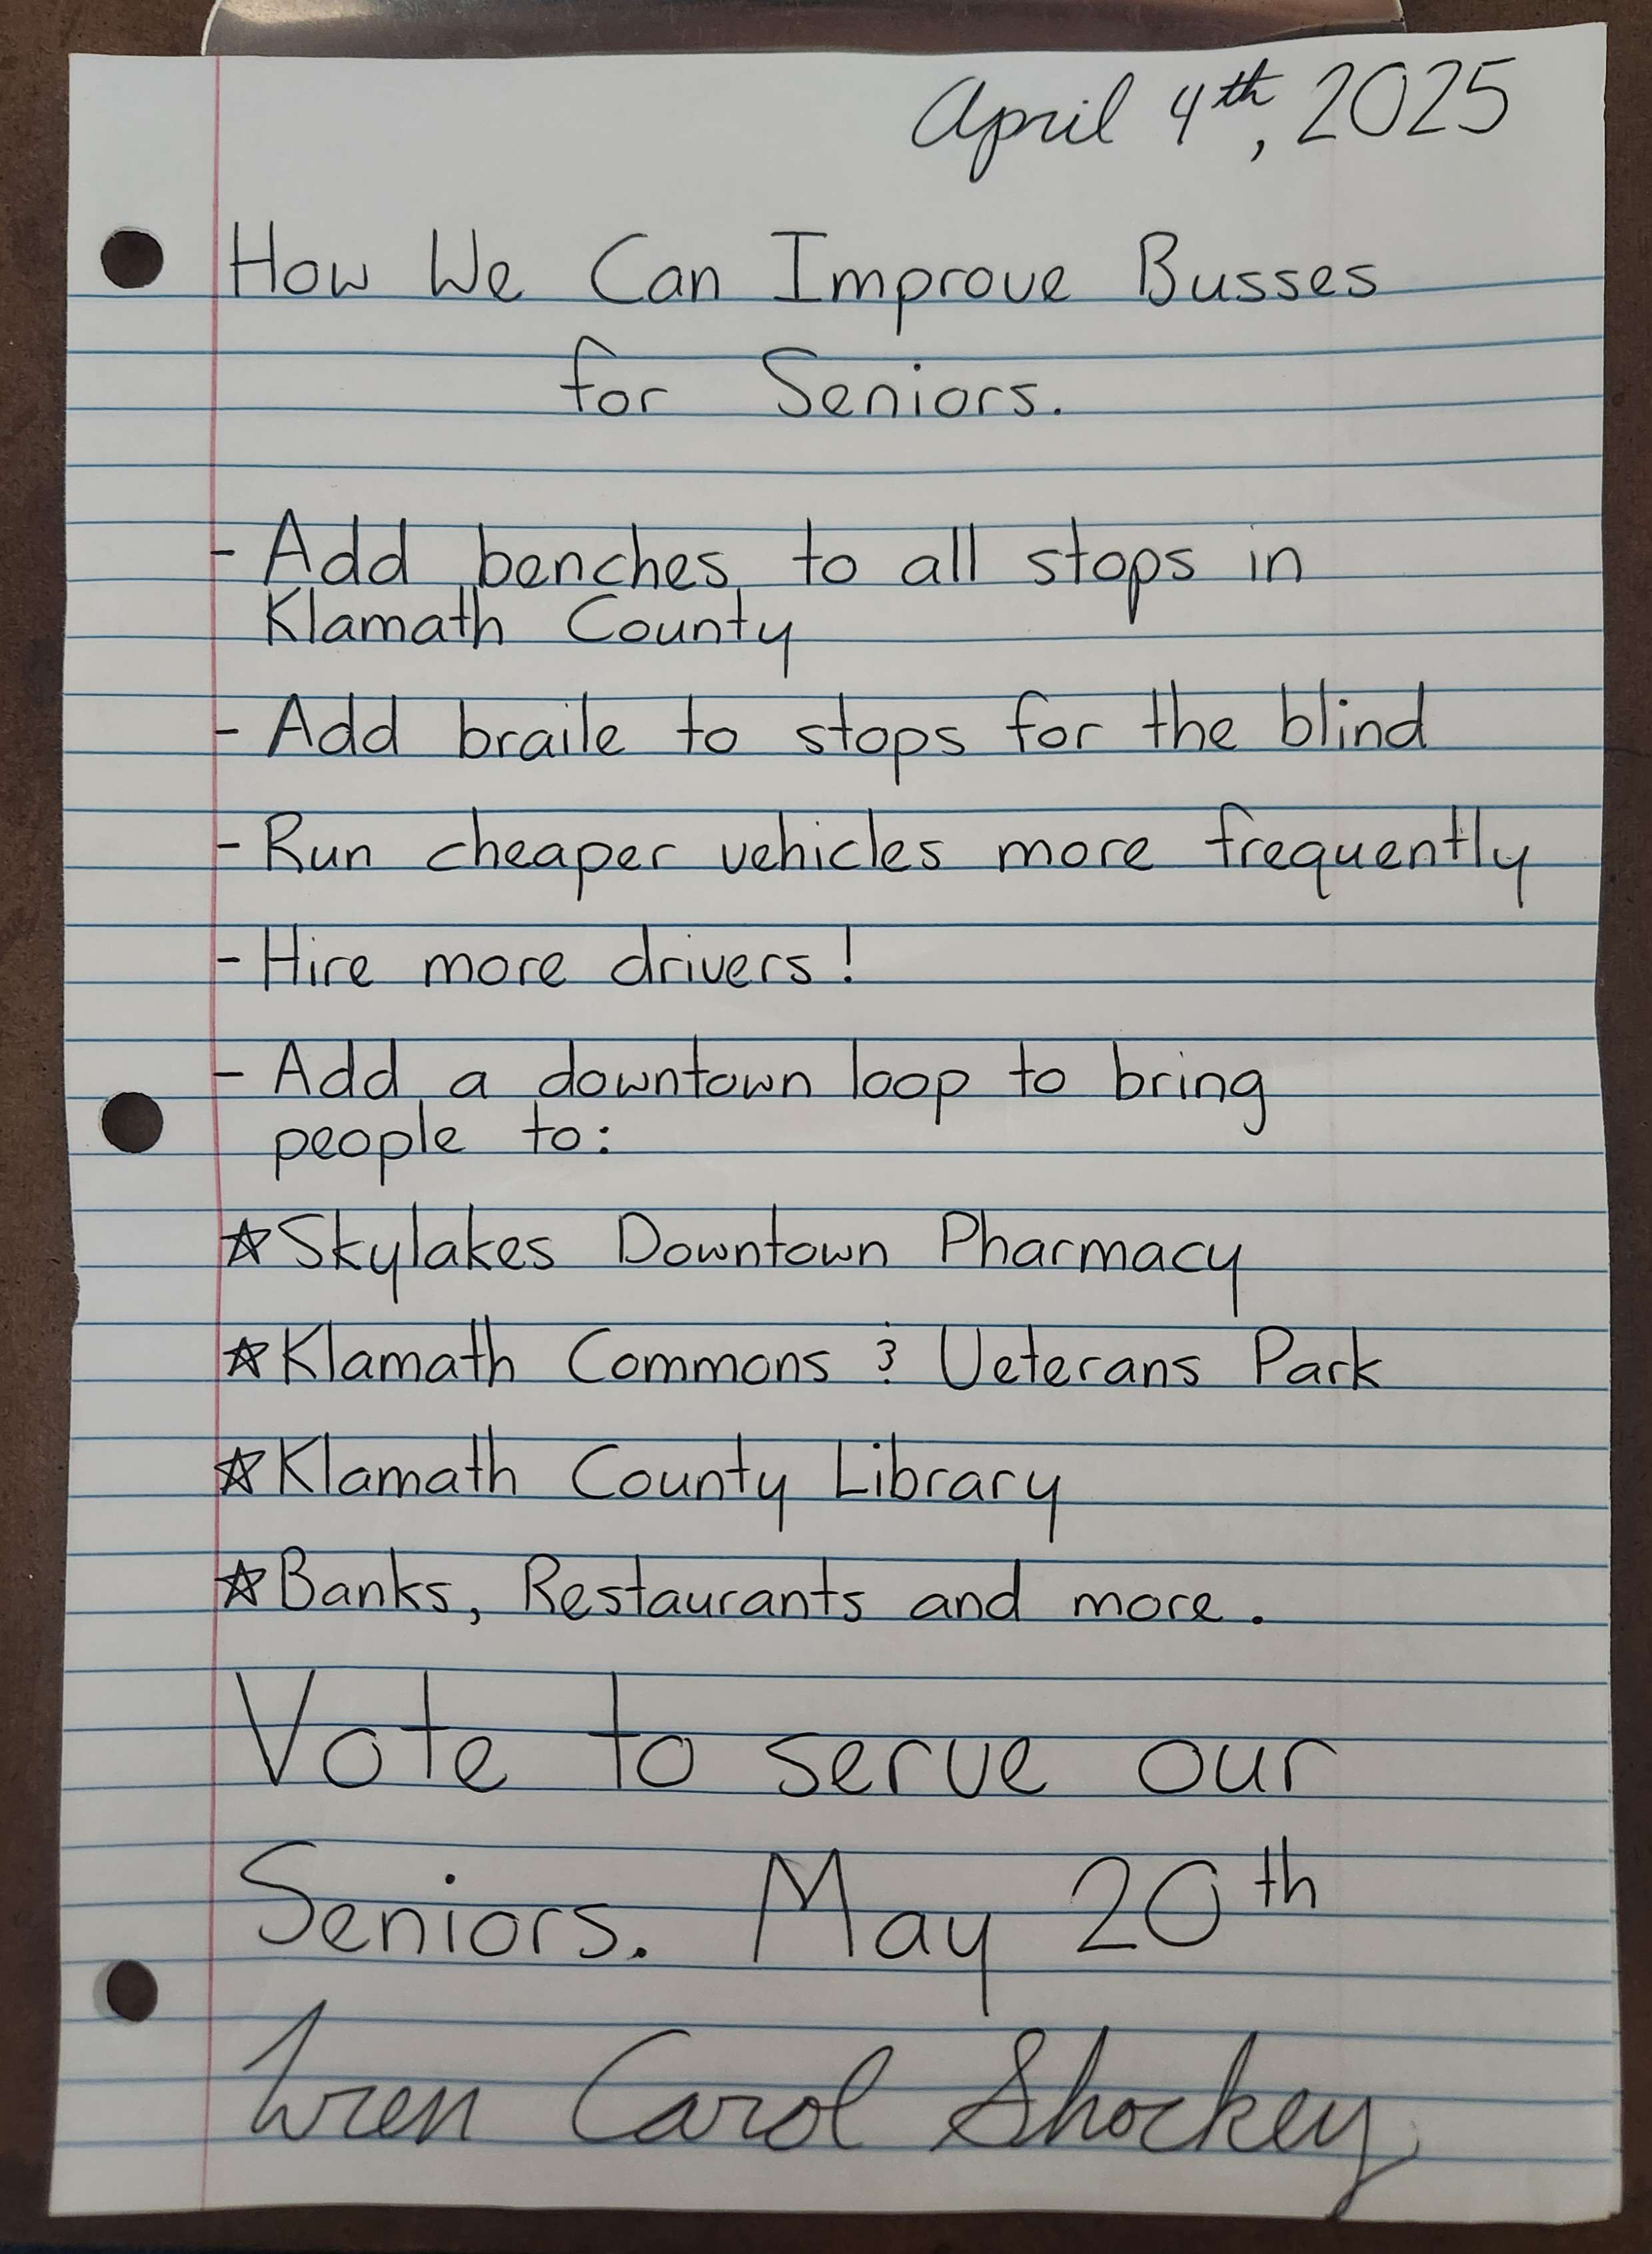 April 4th, 2025
How We Can Improve Busses
for Seniors.
- Add benches to all stops in
Klamath County
- Add braile to stops for the blind
- Run cheaper vehicles more frequently
- Hire more drivers!
- Add a downtown loop to bring
people to:
☆Skylakes Downtown Pharmacy
☆Klamath Commons & Veterans Park
☆Klamath County Library
☆Banks, Restaurants and more.
Vote to serve our
Seniors. May 20th
Wren Carol Shockey